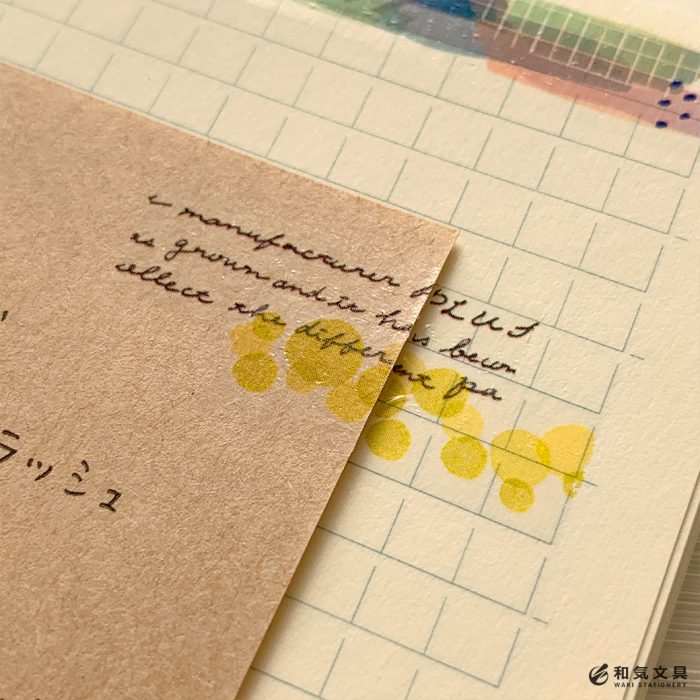 manufacturer
as grown and it has been
ollect the different pa
ラッシュ
和気文具
WAKI STATIONERY